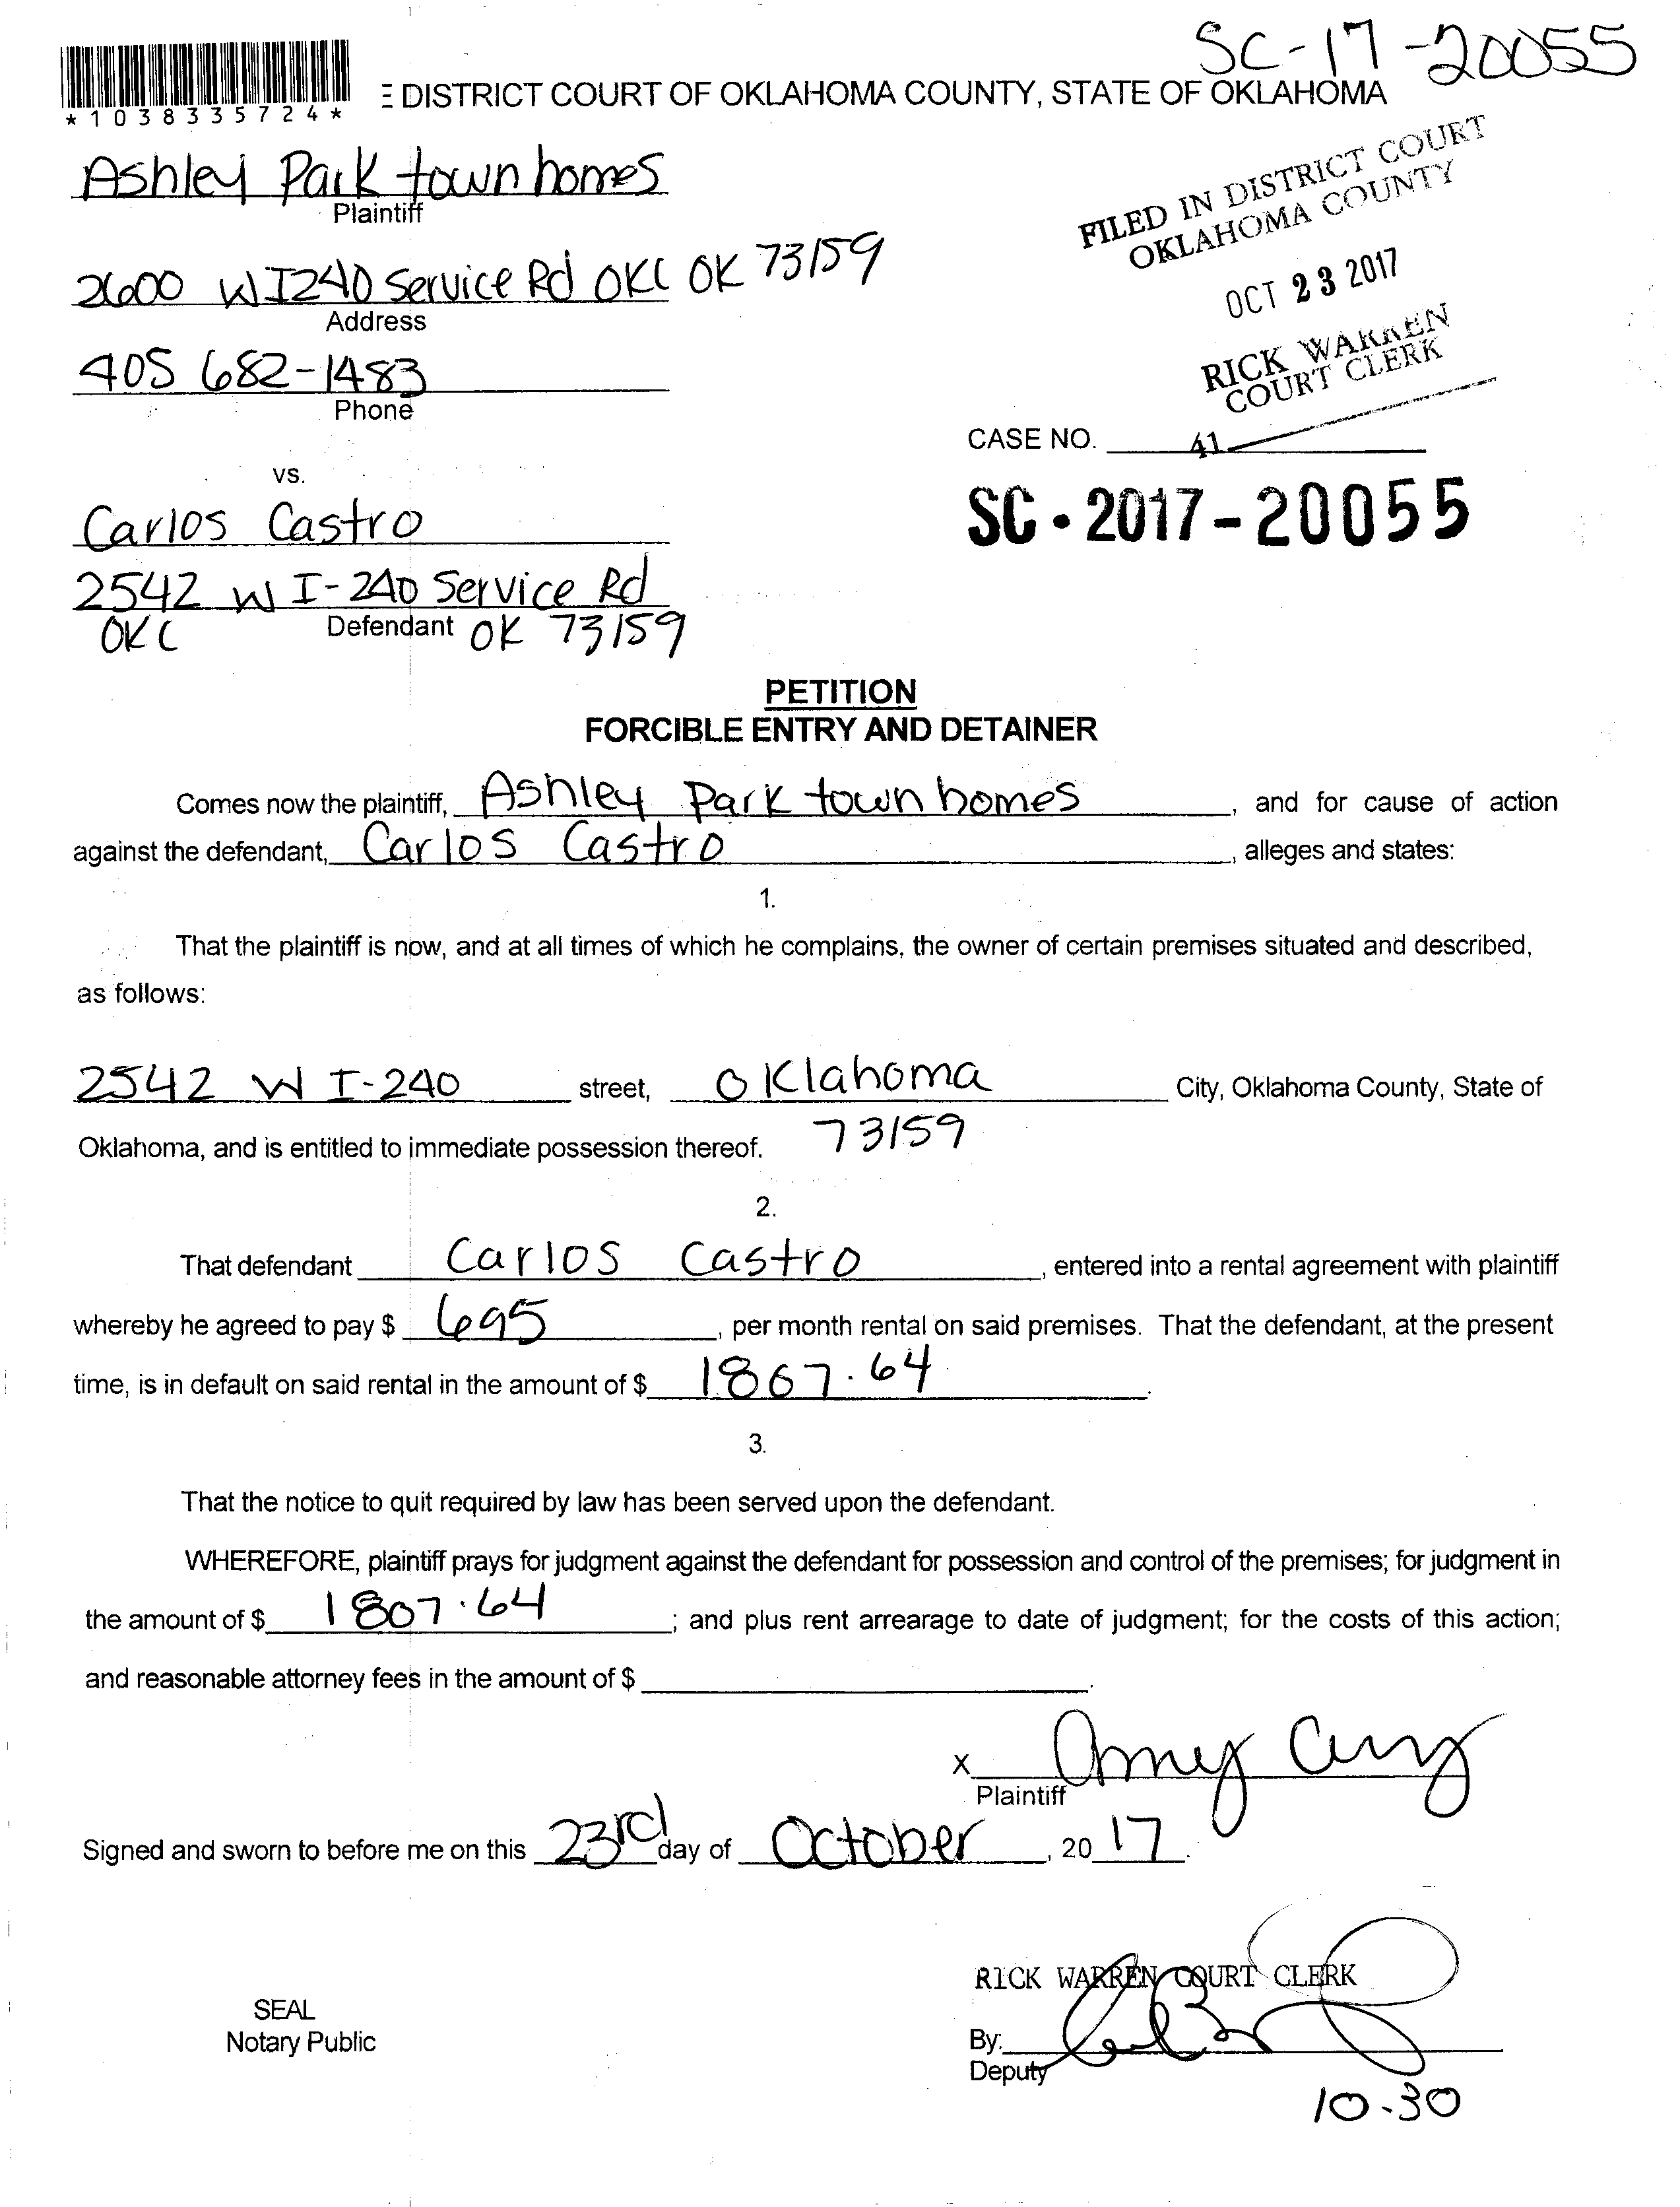 SC-17-20055
*1038335724*
DISTRICT COURT OF OKLAHOMA COUNTY, STATE OF OKLAHOMA
Ashley Park townhomes
Plaintiff
FILED IN DISTRICT COURT
OKLAHOMA COUNTY
OCT 23 2017
RICK WARREN
COURT CLERK
2600 W I240 Service Rd OKC OK 73159
Address
405 682-1483
Phone
CASE NO. 41
vs.
SC-2017-20055
Carlos Castro
2542 W I-240 Service Rd
OKC Defendant OK 73159
PETITION
FORCIBLE ENTRY AND DETAINER
Comes now the plaintiff, Ashley Park townhomes, and for cause of action
against the defendant, Carlos Castro, alleges and states:
1.
That the plaintiff is now, and at all times of which he complains, the owner of certain premises situated and described,
as follows:
2542 W I-240 street, Oklahoma City, Oklahoma County, State of
Oklahoma, and is entitled to immediate possession thereof. 73159
2.
That defendant Carlos Castro, entered into a rental agreement with plaintiff
whereby he agreed to pay $ 695, per month rental on said premises. That the defendant, at the present
time, is in default on said rental in the amount of $ 1867.64.
3.
That the notice to quit required by law has been served upon the defendant.
WHEREFORE, plaintiff prays for judgment against the defendant for possession and control of the premises; for judgment in
the amount of $ 1807.64; and plus rent arrearage to date of judgment; for the costs of this action;
and reasonable attorney fees in the amount of $ .
x Amy
Plaintiff
Signed and sworn to before me on this 23rd day of October, 20 17.
RICK WARREN COURT CLERK
SEAL
Notary Public
By:
Deputy
10-30